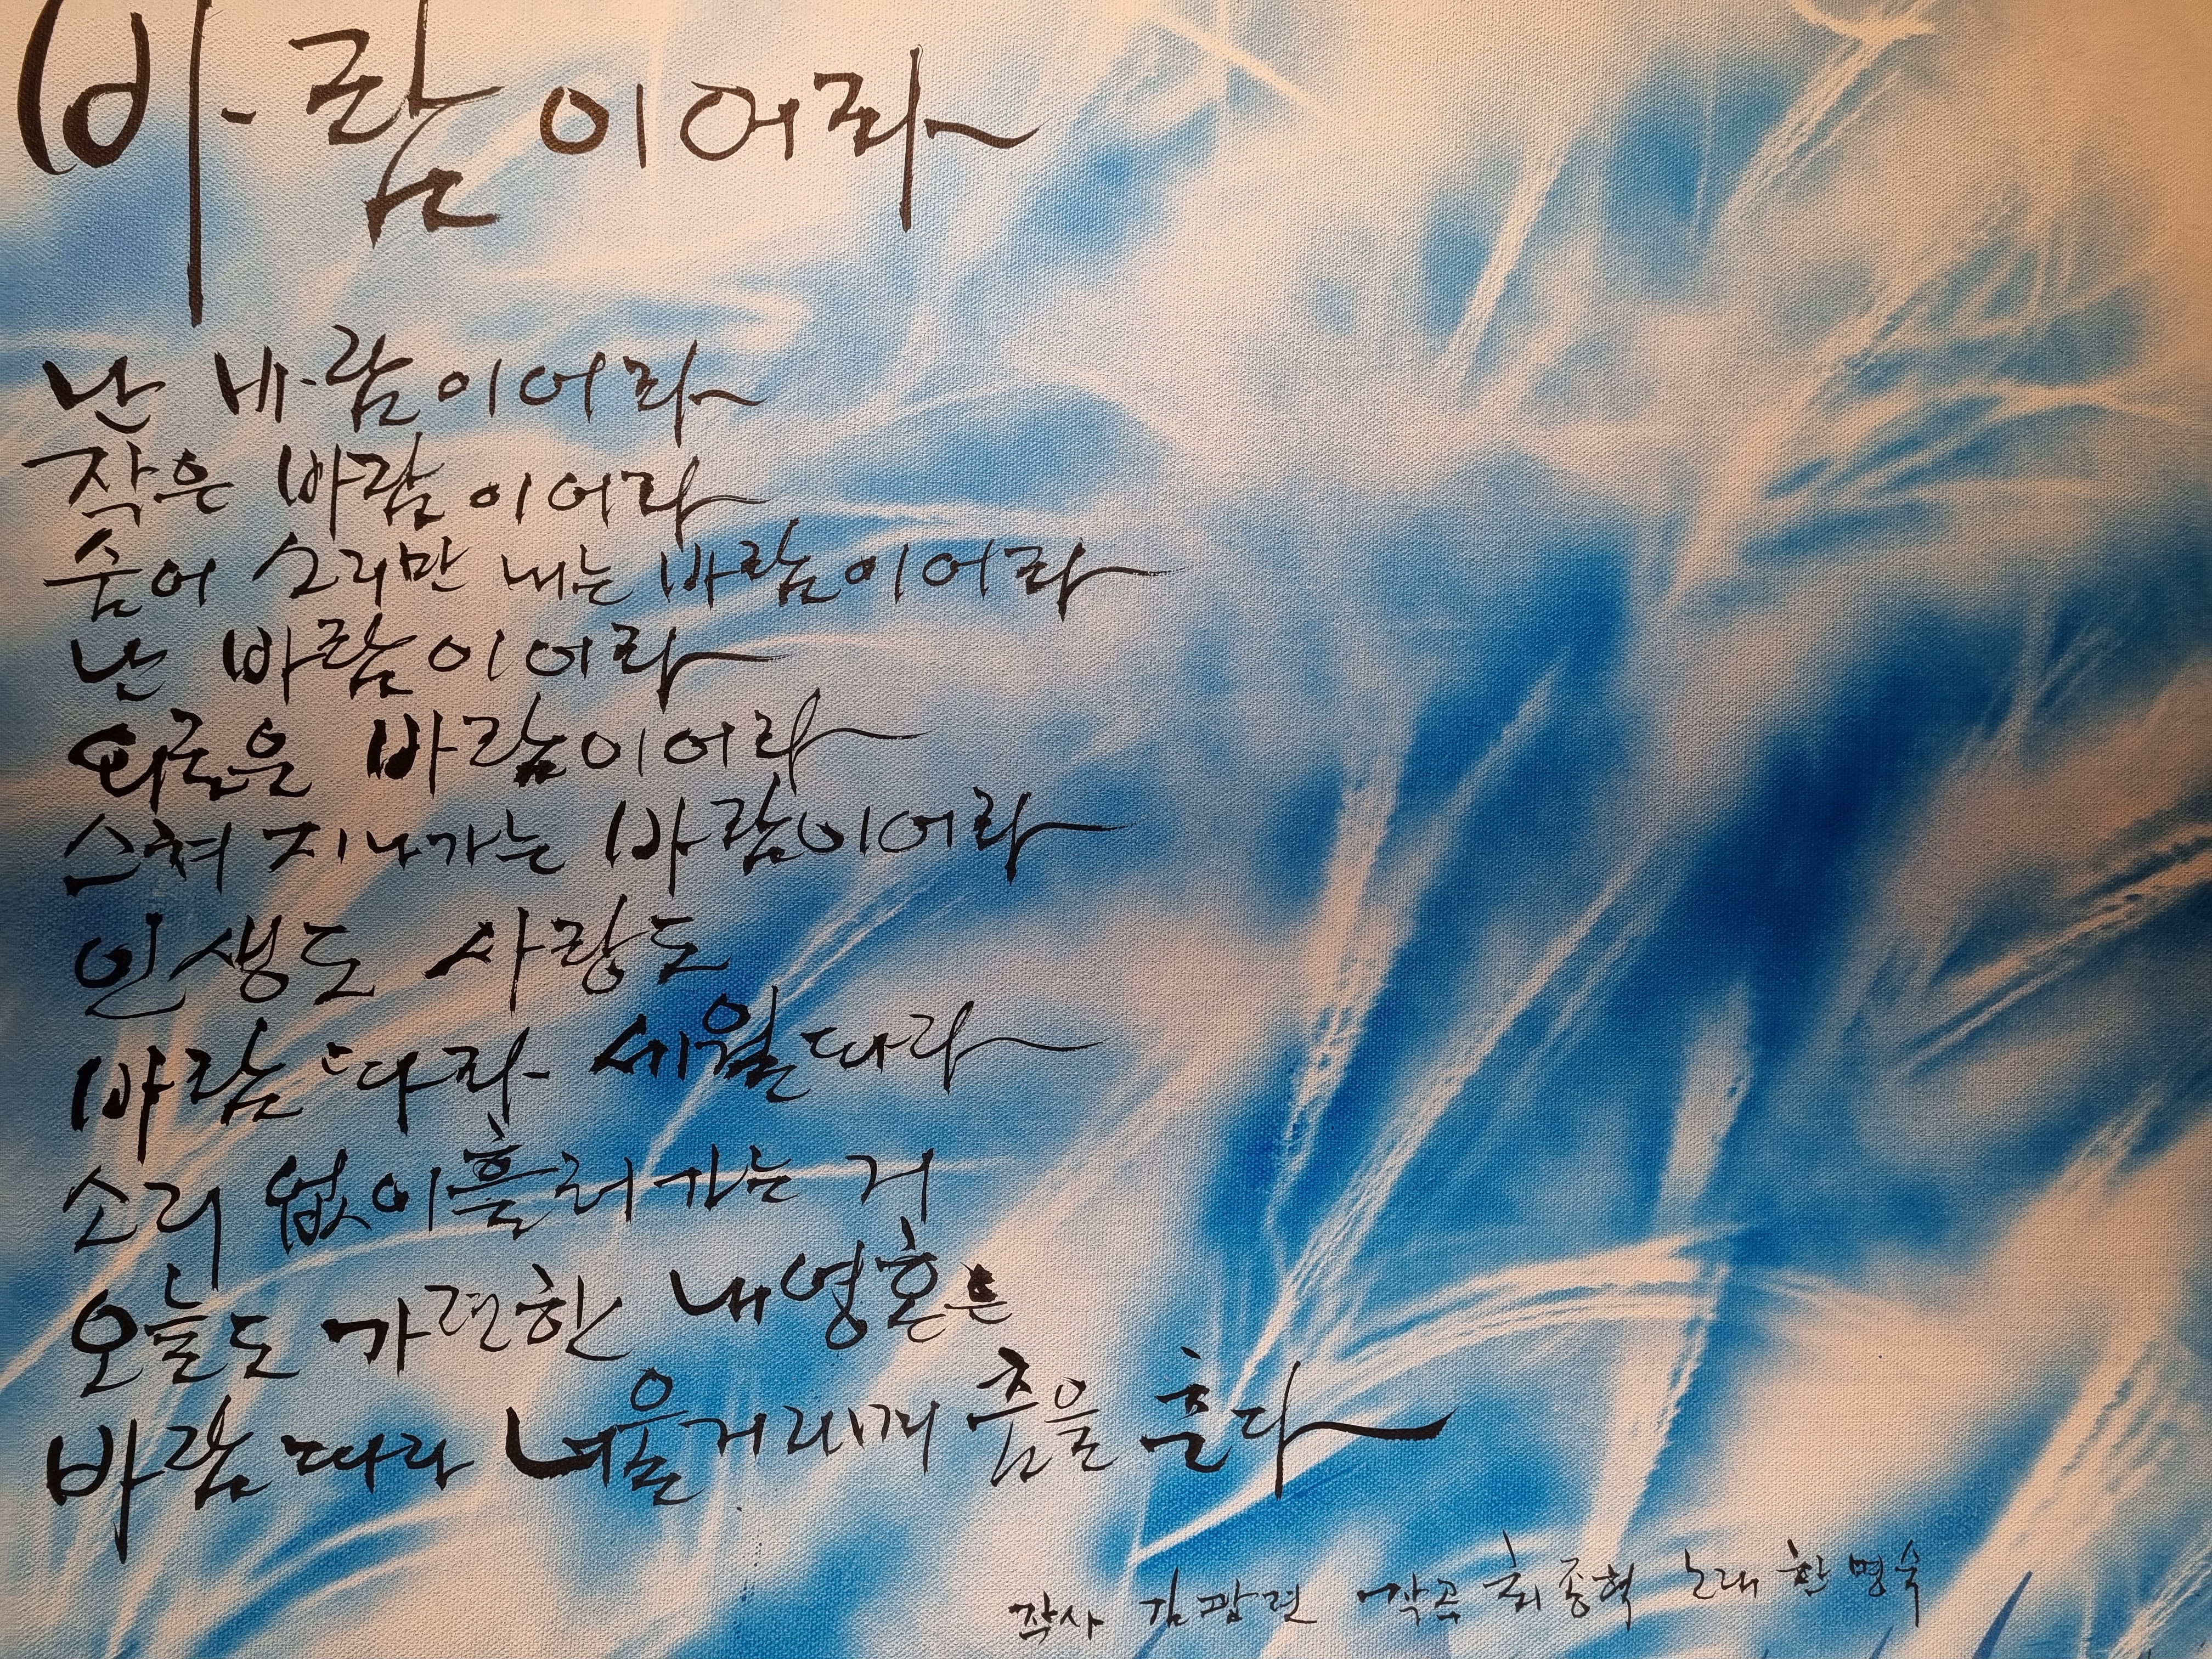 바람이어라
난 바람이어라
작은 바람이어라
숨어 소리만 내는 바람이어라
난 바람이어라
외로운 바람이어라
스쳐 지나가는 바람이어라
인생도 사랑도
바람 따라 세월 따라
소리 없이 흘러가는 거
오늘도 가련한 내 영혼은
바람 따라 너울거리며 춤을 춘다
작사 작곡 최종혁 노래 한명숙